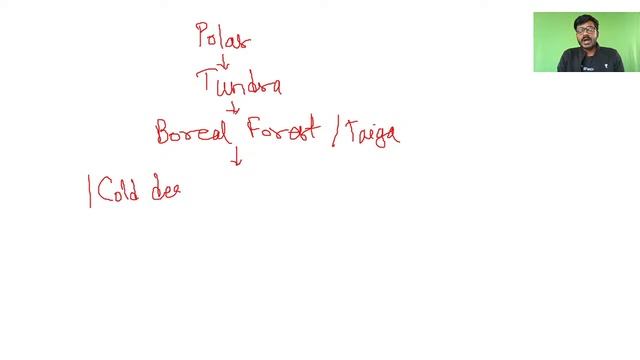 Polar
Tundra
Boreal Forest / Taiga
/ Cold des